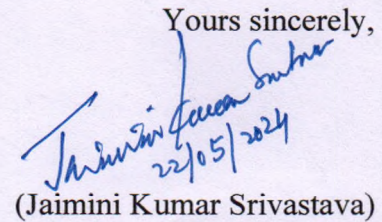 Yours sincerely,
Jaimini Kumar Srivastava
22/05/2024
(Jaimini Kumar Srivastava)